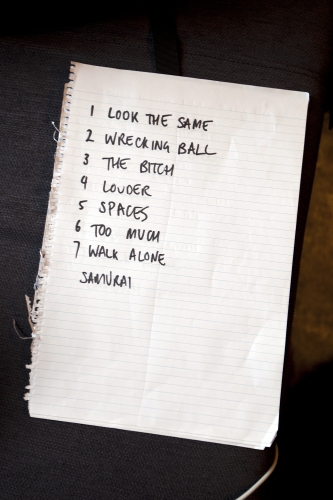 1 LOOK THE SAME
2 WRECKING BALL
3 THE BITCH
4 LOUDER
5 SPACES
6 TOO MUCH
7 WALK ALONE
SAMURAI